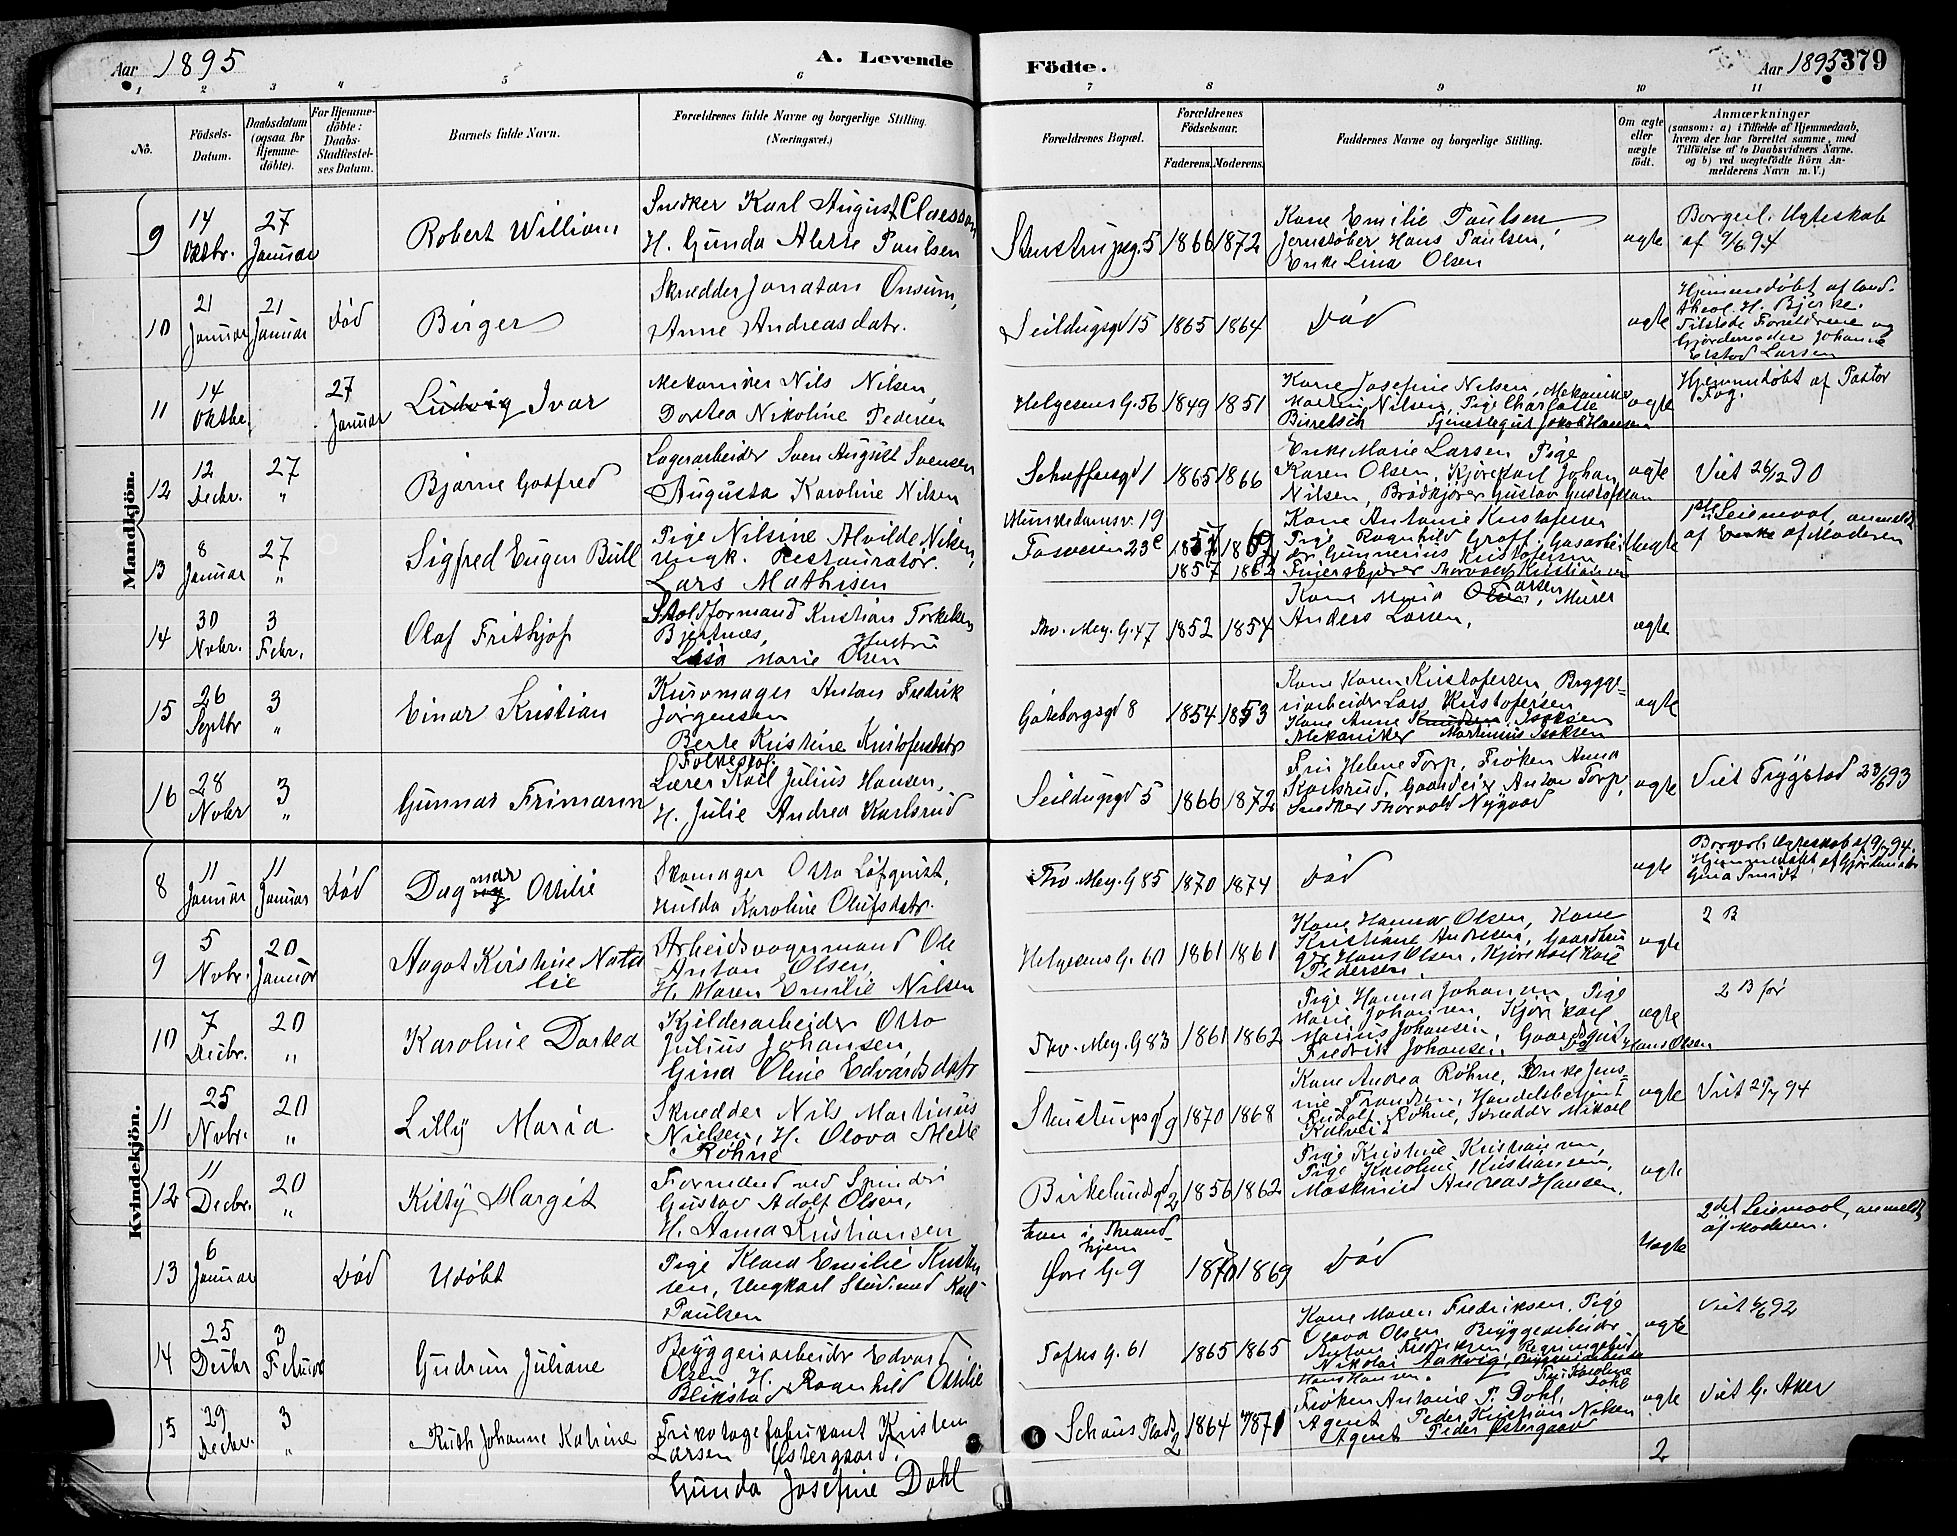 Aar 1895
A. Levende Födte.
Aar 1895
379
1 2 3 4 5 6 7 8 9 10 11
No.
Födsels-Datum.
Daabsdatum (ogsaa for Hjemme-döbte).
For Hjemme-döbte: Daabs-Stadfæstel-ses Datum.
Barnets fulde Navn.
Forældrenes fulde Navne og borgerlige Stilling. (Næringsvei.)
Forældrenes Bopæl.
Forældrenes Födselsaar.
Faderens. Moderens.
Faddernes Navne og borgerlige Stilling.
Om ægte eller uægte födt.
Anmærkninger
(saasom: a) i Tilfælde af Hjemmedaab, hvem der har forrettet samme, med Tilföielse af to Daabsvidners Navne. og b) ved uægtefödte Börn An-melderens Navn m. V.)
Mandkjön.
9
14 Oktbr.
27 Januar
Robert William
Snedker Karl August Claesson
H. Gunda Alette Paulsen
Stenstrupsg. 5
1866 1872
Kone Emilie Paulsen
Jernstøber Hans Paulsen,
Enke Lina Olsen
ægte
Borgerl. Ægteskab
af 9/6 94
10
21 Januar
21 Januar
Død
Birger
Skrædder Jonatan Onsum,
Anne Andreasdatr.
Seildugsgd 15
1865 1864
Død
ægte
Hjemmedøbt af cand.
theol. H. Bjerke.
Tilstede Forældrene og
Gjordemoder Johanne
Elstad Larsen
11
14 Oktbr.
27 Januar
Ludvig Ivar
Mekaniker Nils Nilsen,
Dortea Nikoline Pedersen
Helgesens G. 56
1849 1851
Kone Josefine Nilsen, Mekaniker
Martin Nilsen, Pige Charlotte
Tjenestegut Jakob Hansen
ægte
Hjemmedøbt af Pastor
Fog.
12
12 Decbr.
27 "
Bjarne Gotfred
Lagerarbeider Sven August Svensen
Augusta Karoline Nilsen
Schæffersgd 1
1865 1866
Enke Marie Larsen, Pige
Karen Olsen, Kjørekarl Johan
Nilsen, Brødkjører Gustav Gustafsson
ægte
Viet 26/12 90
13
8 Januar
27 "
Sigfred Eugen Bull
Pige Nilsine Alvilde Nilsen,
Ungk. Restauratør
Lars Mathisen
Munkedamsv. 19
Fosveien 23c
1857 1862
Kone Antonie Kristofersen
Pige Ragnhild Groft, Gasarbei
der Gunnerius Kristofersen
Thorvald Kristiansen
Uægte
1ste Leiermaal, anmeldt
af Enke af Moderen
14
30 Novbr.
3 Febr.
Olaf Frithjof
Stoldformand Kristian Torkelsen
Bjertnæs, Hustru
Lisa Marie Olsen
Thv. Mey. G. 47
1852 1854
Kone Maria Olsen Larsen, Murer
Anders Larsen,
ægte
15
26 Septbr
3 "
Einar Kristian
Kurvmager Anton Fredrik
Jørgensen
Berte Kristine Kristofersdatr
Gøteborgsgd 8
1854 1853
Kone Karen Kristofersen Brygge-
riarbeider Lars Kristofersen
Kone Anne Knudsen Isaksen
Mekaniker Martinius Isaksen
ægte
16
28 Novbr
3 "
Gunnar Frimann
Folkeskol.
Lærer Karl Julius Hansen,
H. Julie Andrea Karlsrud
Seildugsgd 5
1866 1872
Fru Helene Torp, Frøken Anna
Karlsrud, Gaardeier Anton Torp,
Snedker Thorvald Nygaard
ægte
Viet Trygstad 23/6 93
Kvindekjön.
8
11 Januar
11 Januar
Død
Dagmar Ottilie
Skomager Otto Løfqvist,
Hulda Karoline Olufsdatr.
Thv. Mey. G 85
1870 1874
Død
ægte
Borgerl. Ægteskab af 9/7 94.
Hjemmedøbt af Gjordemoder
Gina Smidt
9
5 Novbr.
20 Januar
Aagot Kirstine Nata
lie
Arbeidsvognmand Ole
Anton Olsen,
H. Maren Emilie Nilsen
Helgesens G. 60
1861 1861
Kone Hanna Olsen, Kone
Kristiane Andresen, Gaardbru
ger Hans Olsen, Kjørekarl Karl
Pedersen.
ægte
2 B
10
7 Decbr.
20 "
Karoline Dortea
Kjelderarbeider Otto
Julius Johansen,
Gina Oline Edvardsdatr
Thv. Mey. G 83
1861 1862
Pige Hanna Johansen, Pige
Marie Johansen, Kjørekarl
Marius Johansen,
Fredrik Johansen, Gaardsgut
Hans Olsen
ægte
2 B før
11
25 Novbr.
20 "
Lilly Maria
Skrædder Nils Martinius
Nielsen, H. Olova Mette
Røhne
Stenstrupsgd 9
1870 1868
Kone Andrea Røhne, Enke Jens-
ine Frandsen, Handelsbetjent
Rudolf Røhne, Skrædder Mikael
Kalveit
ægte
Viet 21/7 94
12
11 Decbr.
20 "
Kitty Margit
Formand ved Spinderi
Gustav Adolf Olsen,
H. Anna Kristiansen
Birkelundsgd 2
1856 1862
Pige Kristine Kristiansen,
Pige Karoline Kristiansen,
Maskinist Andreas Hansen,
ægte
13
6 Januar
Død
Udøbt
Pige Klara Emilie Kristen
sen, Ungkarl Stud. med Karl
Paulsen
han i Thrond
hjem
Øvre G. 9
1870 1869
Død
Uægte
2det Leiermaal, anmeldt
af Moderen.
14
25 Decbr
3 Februar
Gudrun Juliane
Bryggeriarbeider Edvard
Olsen H.
Blikstad Ragnhild Ottilie
Toftes G. 61
1865 1865
Kone Maren Fredriksen, Pige
Olava Olsen Bryggearbeider
Anton Fredriksen Regningsbud
Nikolai Aakvig, Bryggeriarbeider
Hans Hansen.
ægte
Viet 92
15
29 Decbr.
3 "
Ruth Johanne Katrine
Trikotagefabrikant Kristen
Larsen Østergaard,
Gunda Josefine Dahl
Schous Plads 2
1864 1871
Fru Karoline Dahl
Frøken Antonie P. Dahl,
Agent Peder Kristian Nilsen
Agent Peder Østergaard
ægte
Viet G. Aker
2